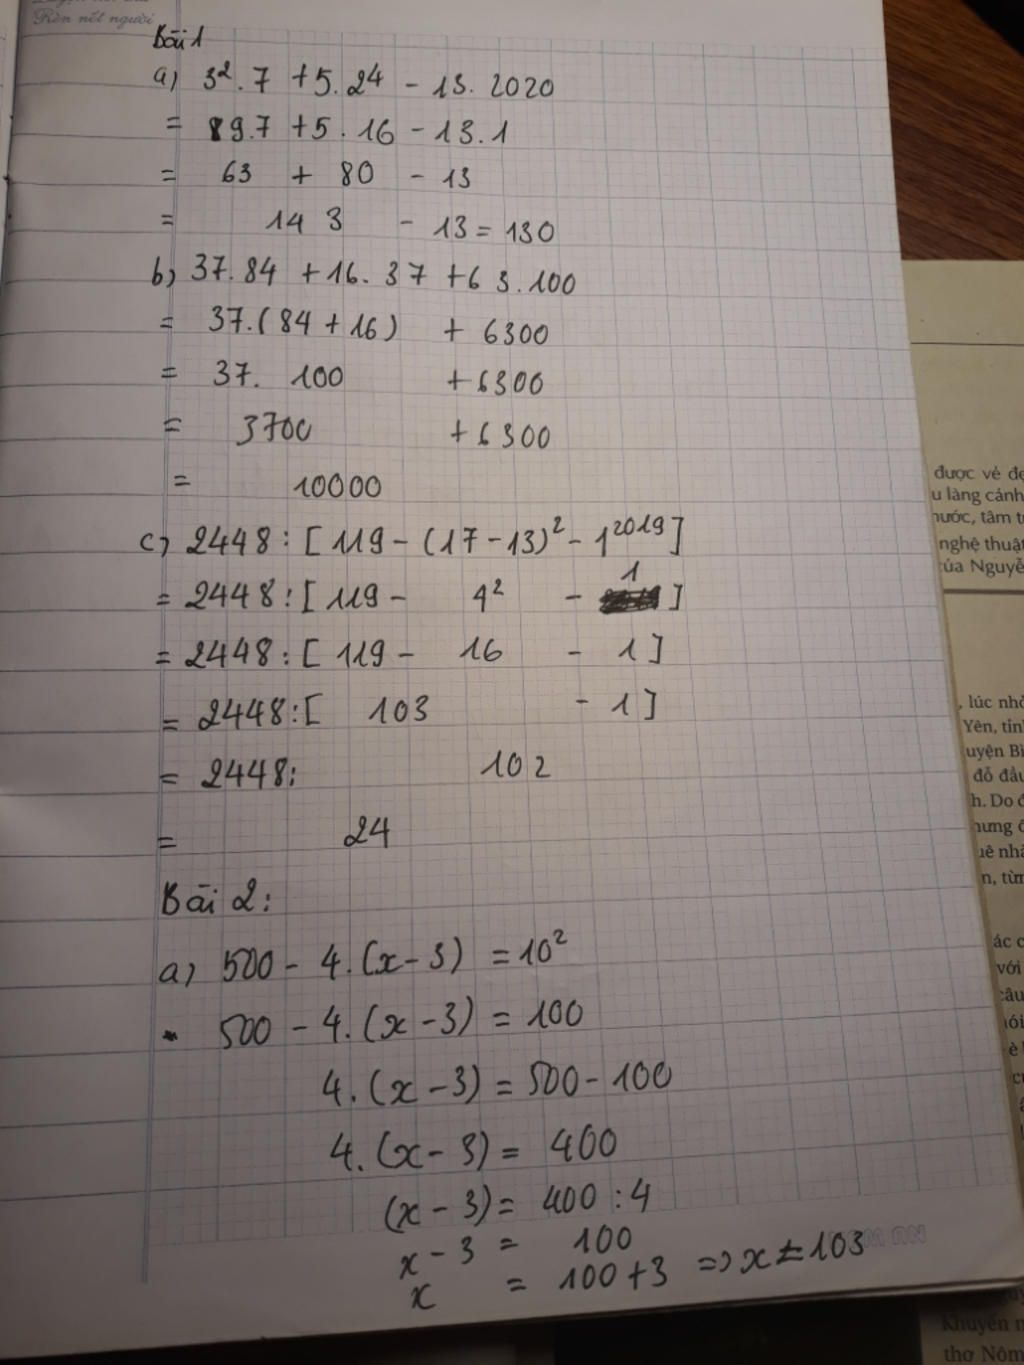 Rèn nết người
Bài 1
a) 3².7 + 5.24 - 13.2020
= 9.7 + 5.16 - 13.1
= 63 + 80 - 13
= 143 - 13 = 130
b) 37.84 + 16.37 + 63.100
= 37.(84 + 16) + 6300
= 37. 100 + 6300
= 3700 + 6300
= 10000
c) 2448 : [119 - (17 - 13)² - 1²⁰¹⁹]
= 2448 : [119 - 4² - 1]
= 2448 : [119 - 16 - 1]
= 2448 : [103 - 1]
= 2448 : 102
= 24
Bài 2:
a) 500 - 4.(x - 3) = 10²
500 - 4.(x - 3) = 100
4.(x - 3) = 500 - 100
4.(x - 3) = 400
(x - 3) = 400 : 4
x - 3 = 100
x = 100 + 3 => x = 103
được vẻ
làng cảnh
nước, tâm
nghệ thuật
của Nguyễ
, lúc nhỏ
Yên, tỉn
uyện Bì
đỗ đầu
h. Do
hưng
uê nhà
n, từ
ác
với
câu
Khuyến
thơ Nôm